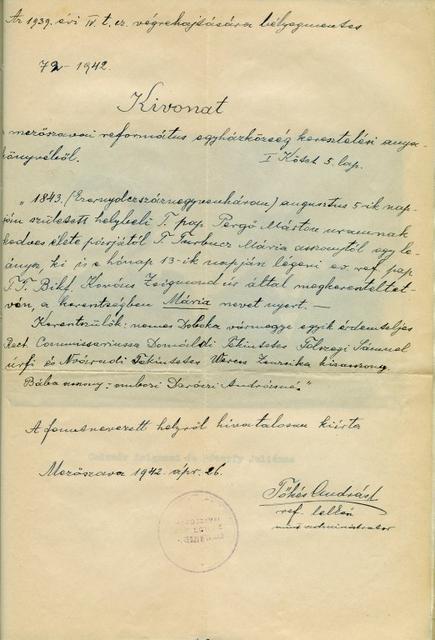 Az 1939. évi IV. t. cz. végrehajtására bélyegmentes
72-1942.
Kivonat
a mezőszavai református egyházközség keresztelési anya-
könyvéből. I Kötet 5. lap.
„1843. (Ezernyolcszáznegyvenhárom) augusztus 5-ik nap-
ján született helybeli T. pap Pergő Márton uramnak
kedves élete párjától T. Turbucz Mária asszonytól egy le-
ánya, ki is e hónap 13-ik napján légeni ev. ref. pap
T. T. Bikf. Kovács Zsigmond úr által megkereszteltet-
vén, a keresztségben Mária nevet nyert. —
Keresztszülők: nemes Doboka vármegye egyik érdemteljes
Rect. Commissariusa Domáldi Tekintetes Tolszegi Sámuel
úrfi és Tekintetes Veress Zsuzsika kisasszony.
Bába asszony: Daróczi Andrásné."
A fennt nevezett helyről hivatalosan kiírta
Mezőszava 1942. ápr. 26.
Tőkés András
ref. lelkész
mint administrator